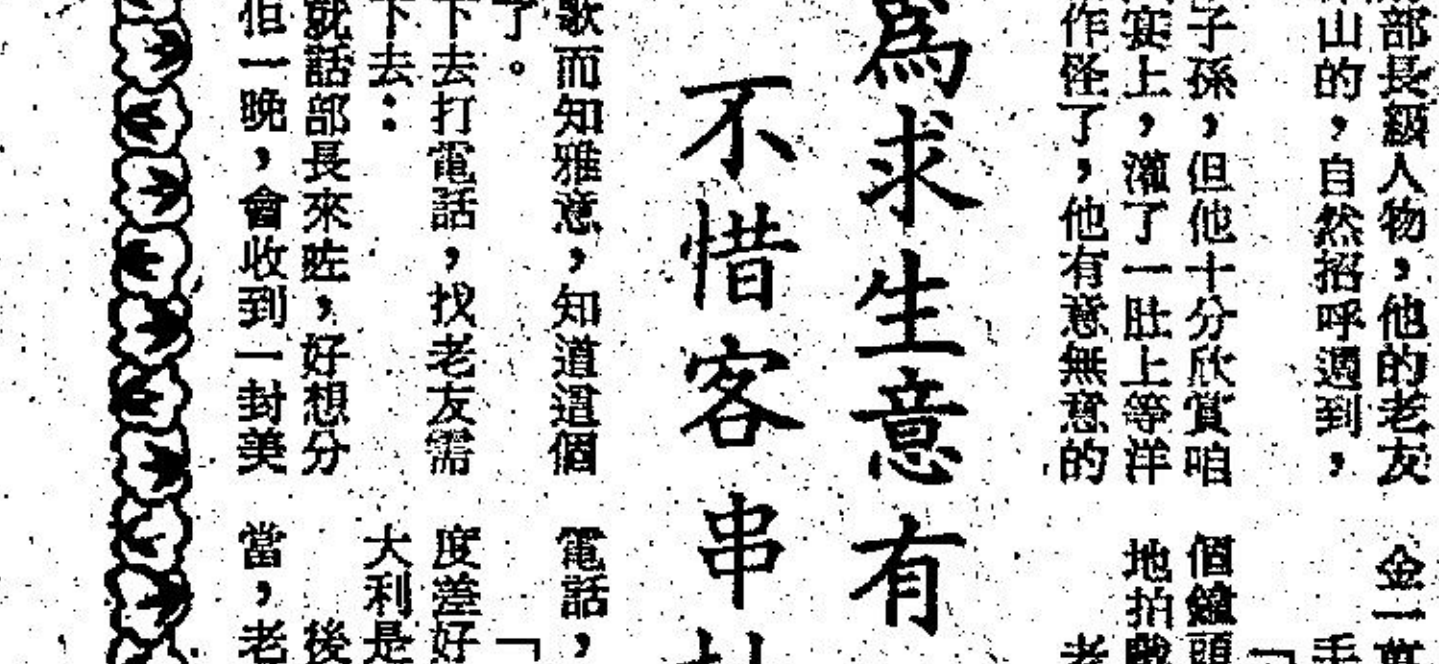 部長級人物，他的老友
山的，自然招呼週到，
子孫，但他十分欣賞咱
宴上，灌了一肚上等洋
作怪了，他有意無意的
金一萬
手
個鐘頭
地拍戲
老
為求生意有
不惜客串
歌而知雅意，知道這個
了。
下去打電話，找老友需
下去：
就話部長來咗，好想分
但一晚，會收到一封美
電話，
「
度蹉好
大利是
後
當，老